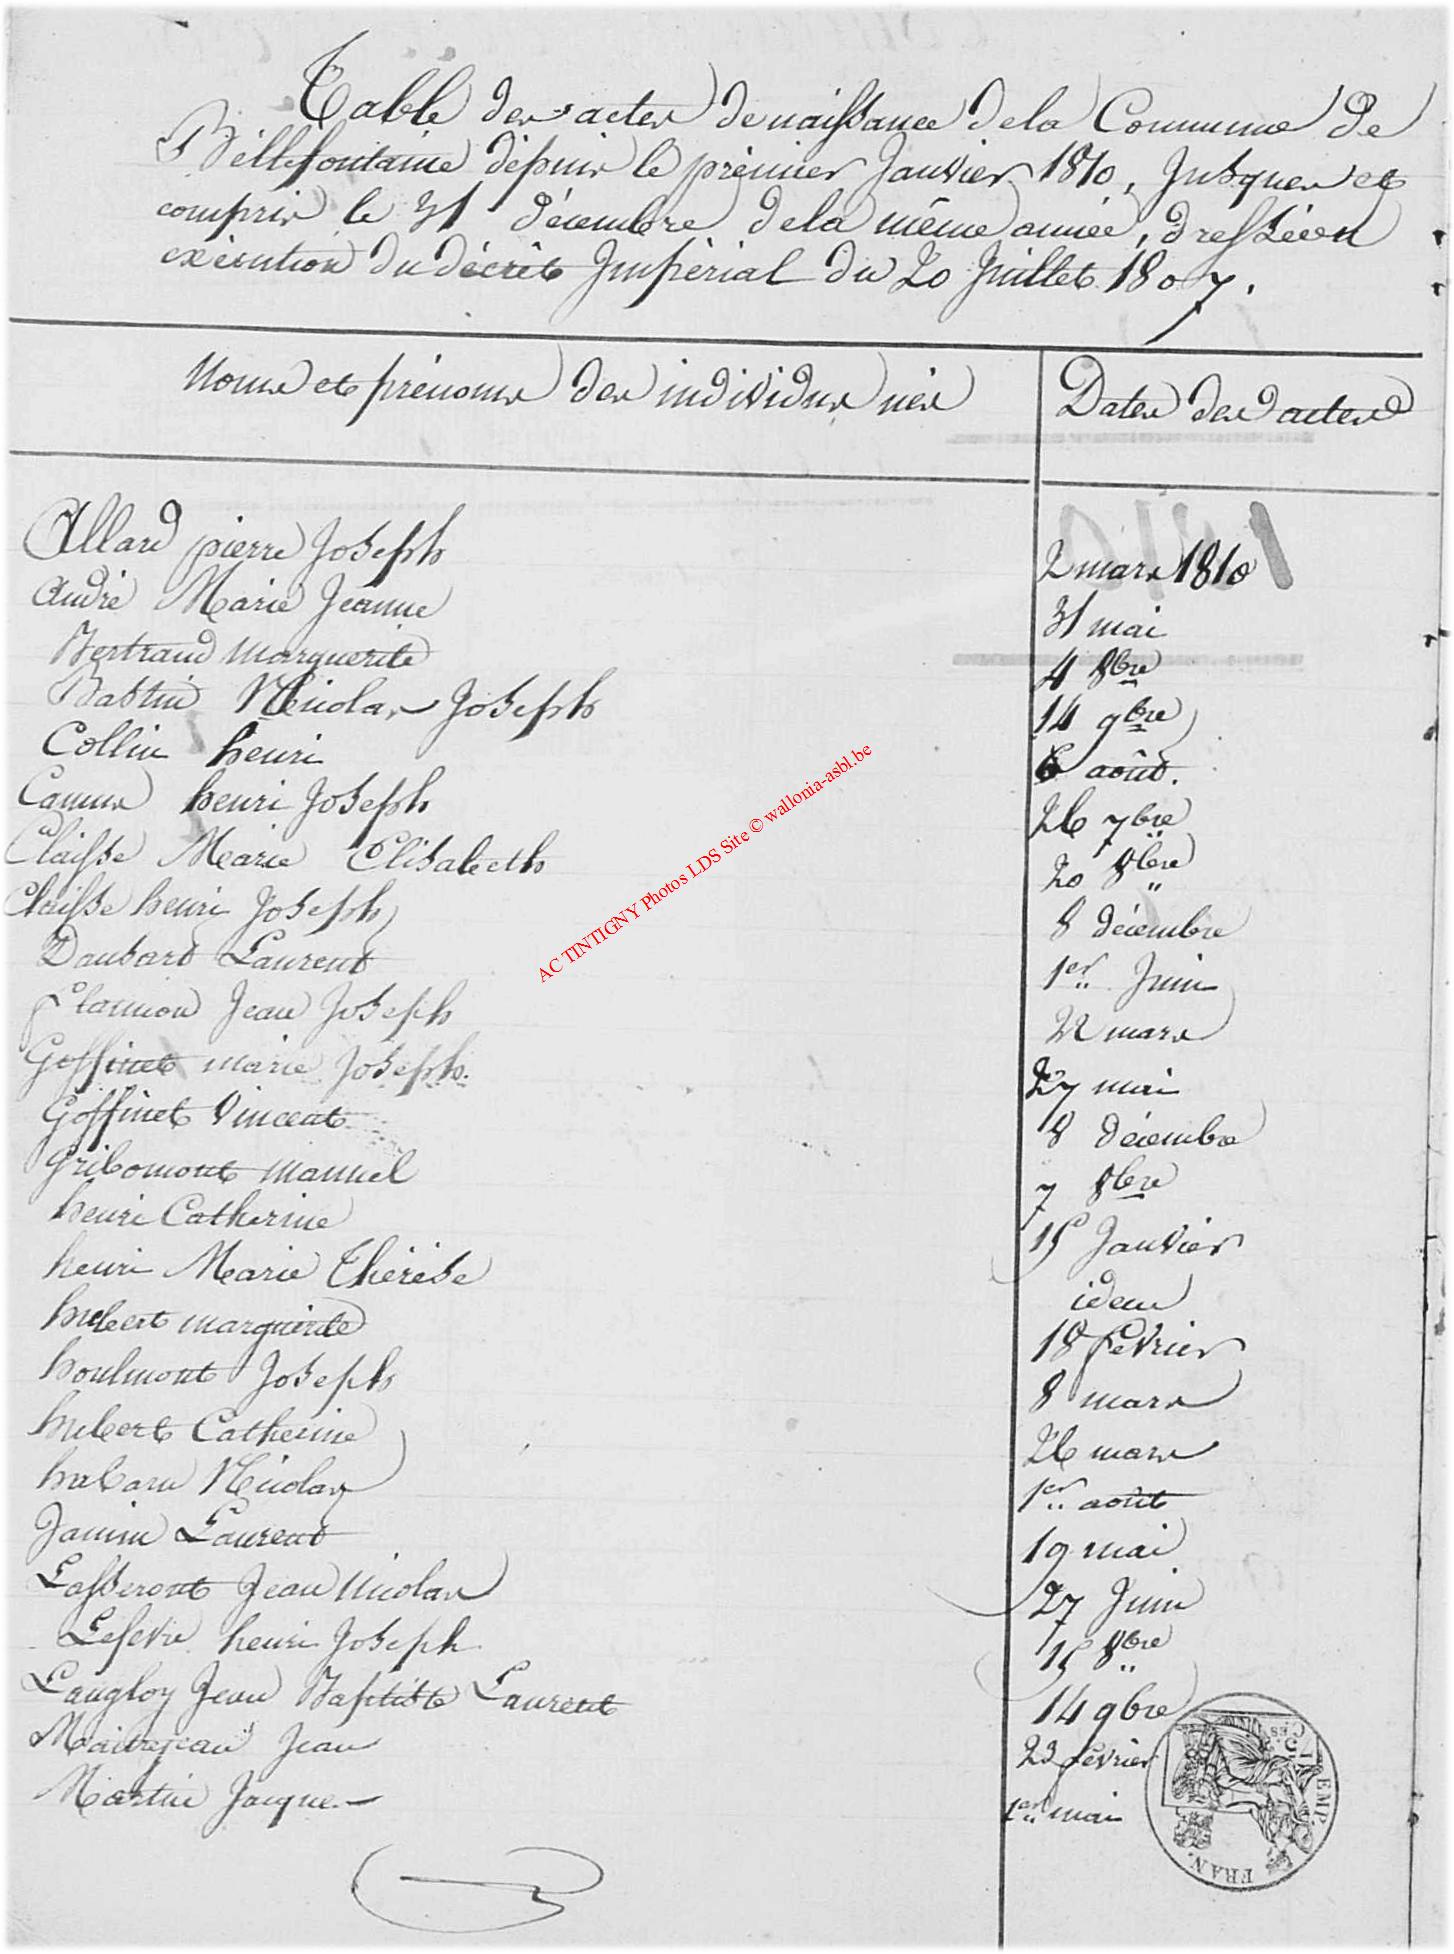 Table des actes de naissance de la Commune de
Bellefontaine dépuis le prémier Janvier 1810, Jusques et
compris le 31 décembre de la même année, dressée en
exécution du décrêt Impérial du 20 Juillet 1807.
Noms et prénoms des individus nés Dates des actes
Allard pierre Joseph 2 mars 1810
André Marie Jeanne 31 mai
Bertrand marguerite 4 8bre
Bastin Nicolas Joseph 14 9bre
Collin henri 6 août.
Camus henri Joseph 26 7bre
Claisse Marie Elisabeth 20 8bre
Claisse henri Joseph 8 décembre
Daubard Laurent 1er Juin
flamion Jean Joseph 22 mars
Goffinet marie Joseph. 27 mai
Goffinet Vincent 8 décembre
Gribomont manuel 7 8bre
henri Catherine 15 Janvier
henri Marie Thérése idem
hubert marguerite 18 février
houlmont Joseph 8 mars
hubert Catherine 26 mars
habaru Nicolas 1er août
Janin Laurent 19 mai
Lasseront Jean Nicolas 27 Juin
Lefevre henri Joseph 15 8bre
Langloy Jean Baptiste Laurent 14 9bre
Maitrejean Jean 23 février
Martin Jacque 1er mai
AC TINTIGNY Photos LDS Site © wallonia-asbl.be
EMP. FRAN.